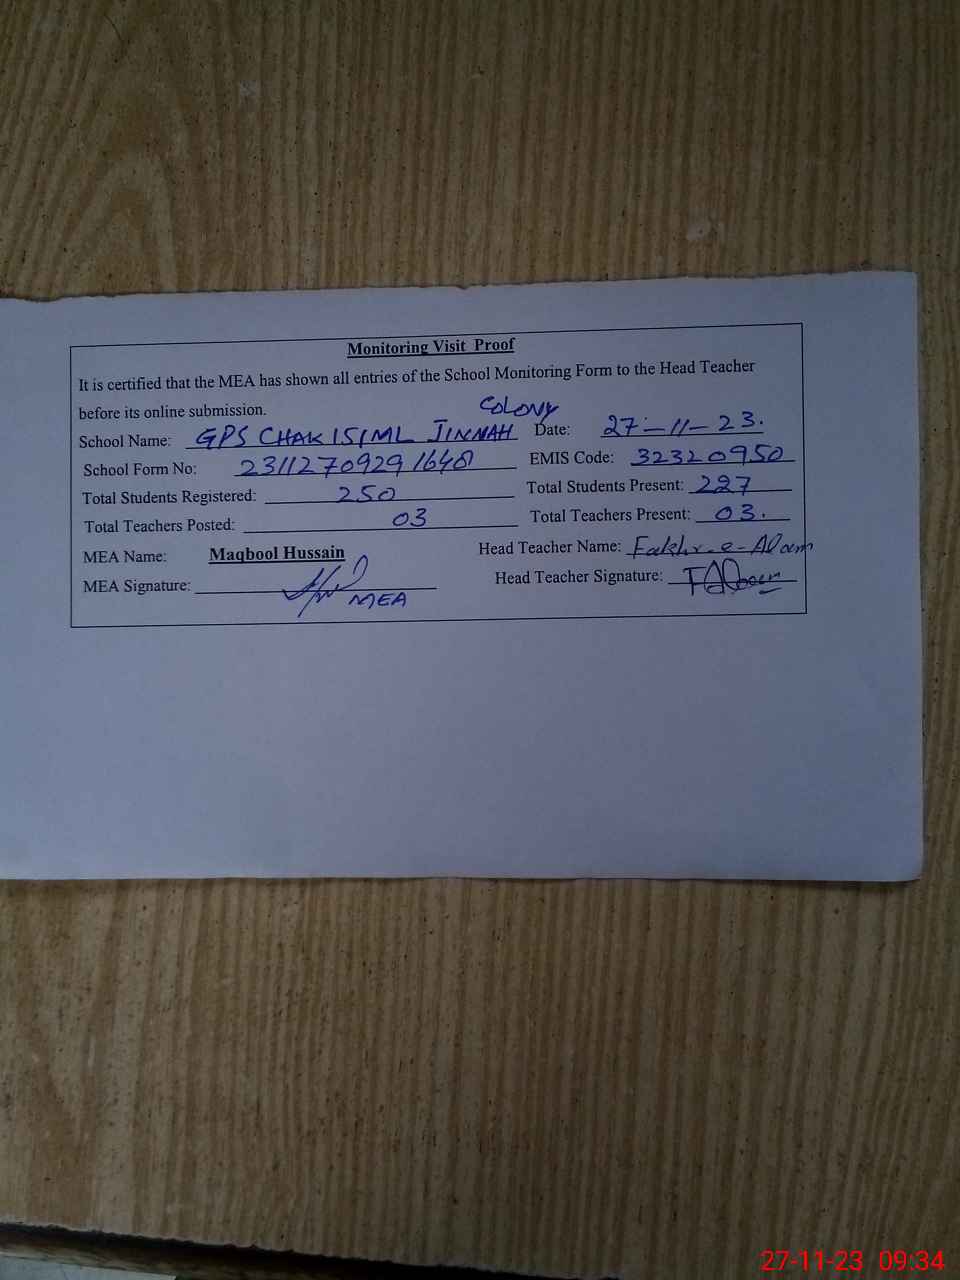 Monitoring Visit Proof
It is certified that the MEA has shown all entries of the School Monitoring Form to the Head Teacher
before its online submission.
School Name: GPS CHAK 151ML JINNAH COLONY Date: 27-11-23.
School Form No: EMIS Code: 32320950
Total Students Registered: 250 Total Students Present: 227
Total Teachers Posted: 03 Total Teachers Present: 03.
MEA Name: Maqbool Hussain Head Teacher Name: Fakhr-e-Alam
MEA Signature: MEA Head Teacher Signature: FAlam
27-11-23 09:34